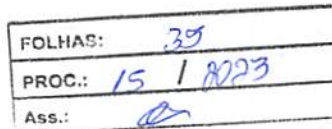 FOLHAS: 39
PROC.: 15 / 2023
Ass.: